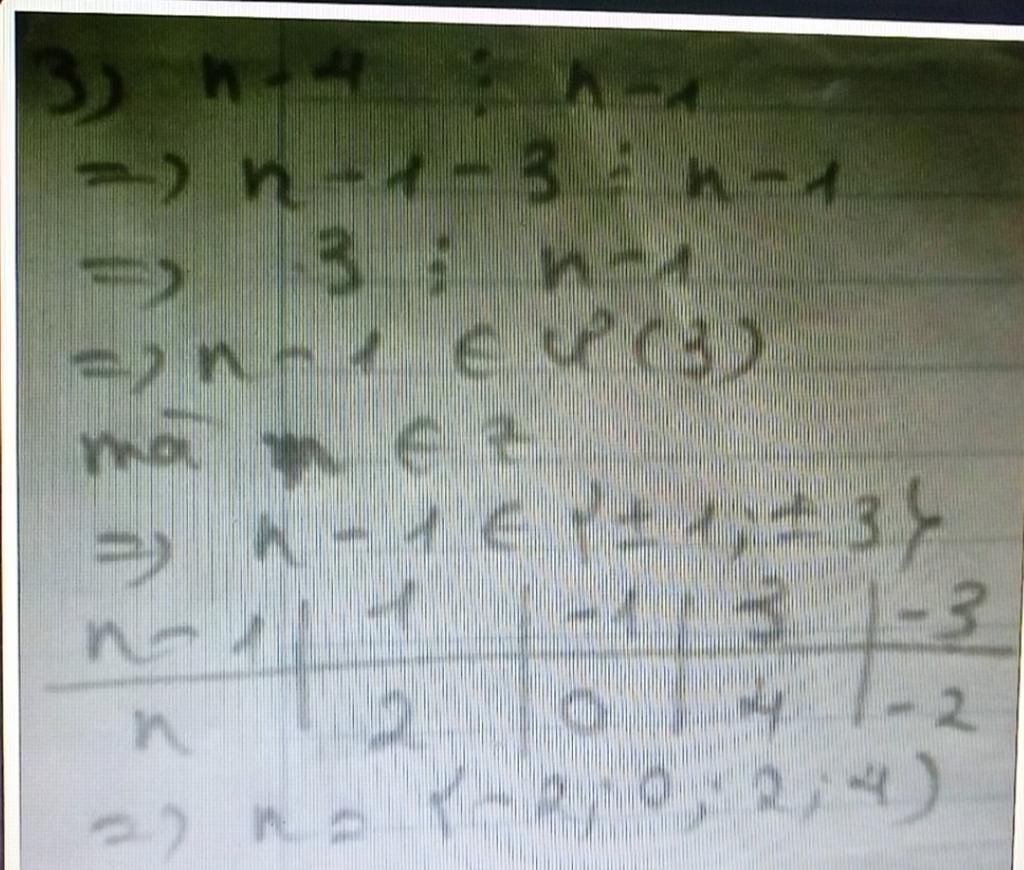 3) n - 4 ⋮ n - 1
=> n - 1 - 3 ⋮ n - 1
=> 3 ⋮ n - 1
=> n - 1 ∈ Ư(3)
mà n ∈ Z
=> n - 1 ∈ {±1; ±3}
n - 1 | 1 | -1 | 3 | -3
n | 2 | 0 | 4 | -2
=> n = {-2; 0; 2; 4)